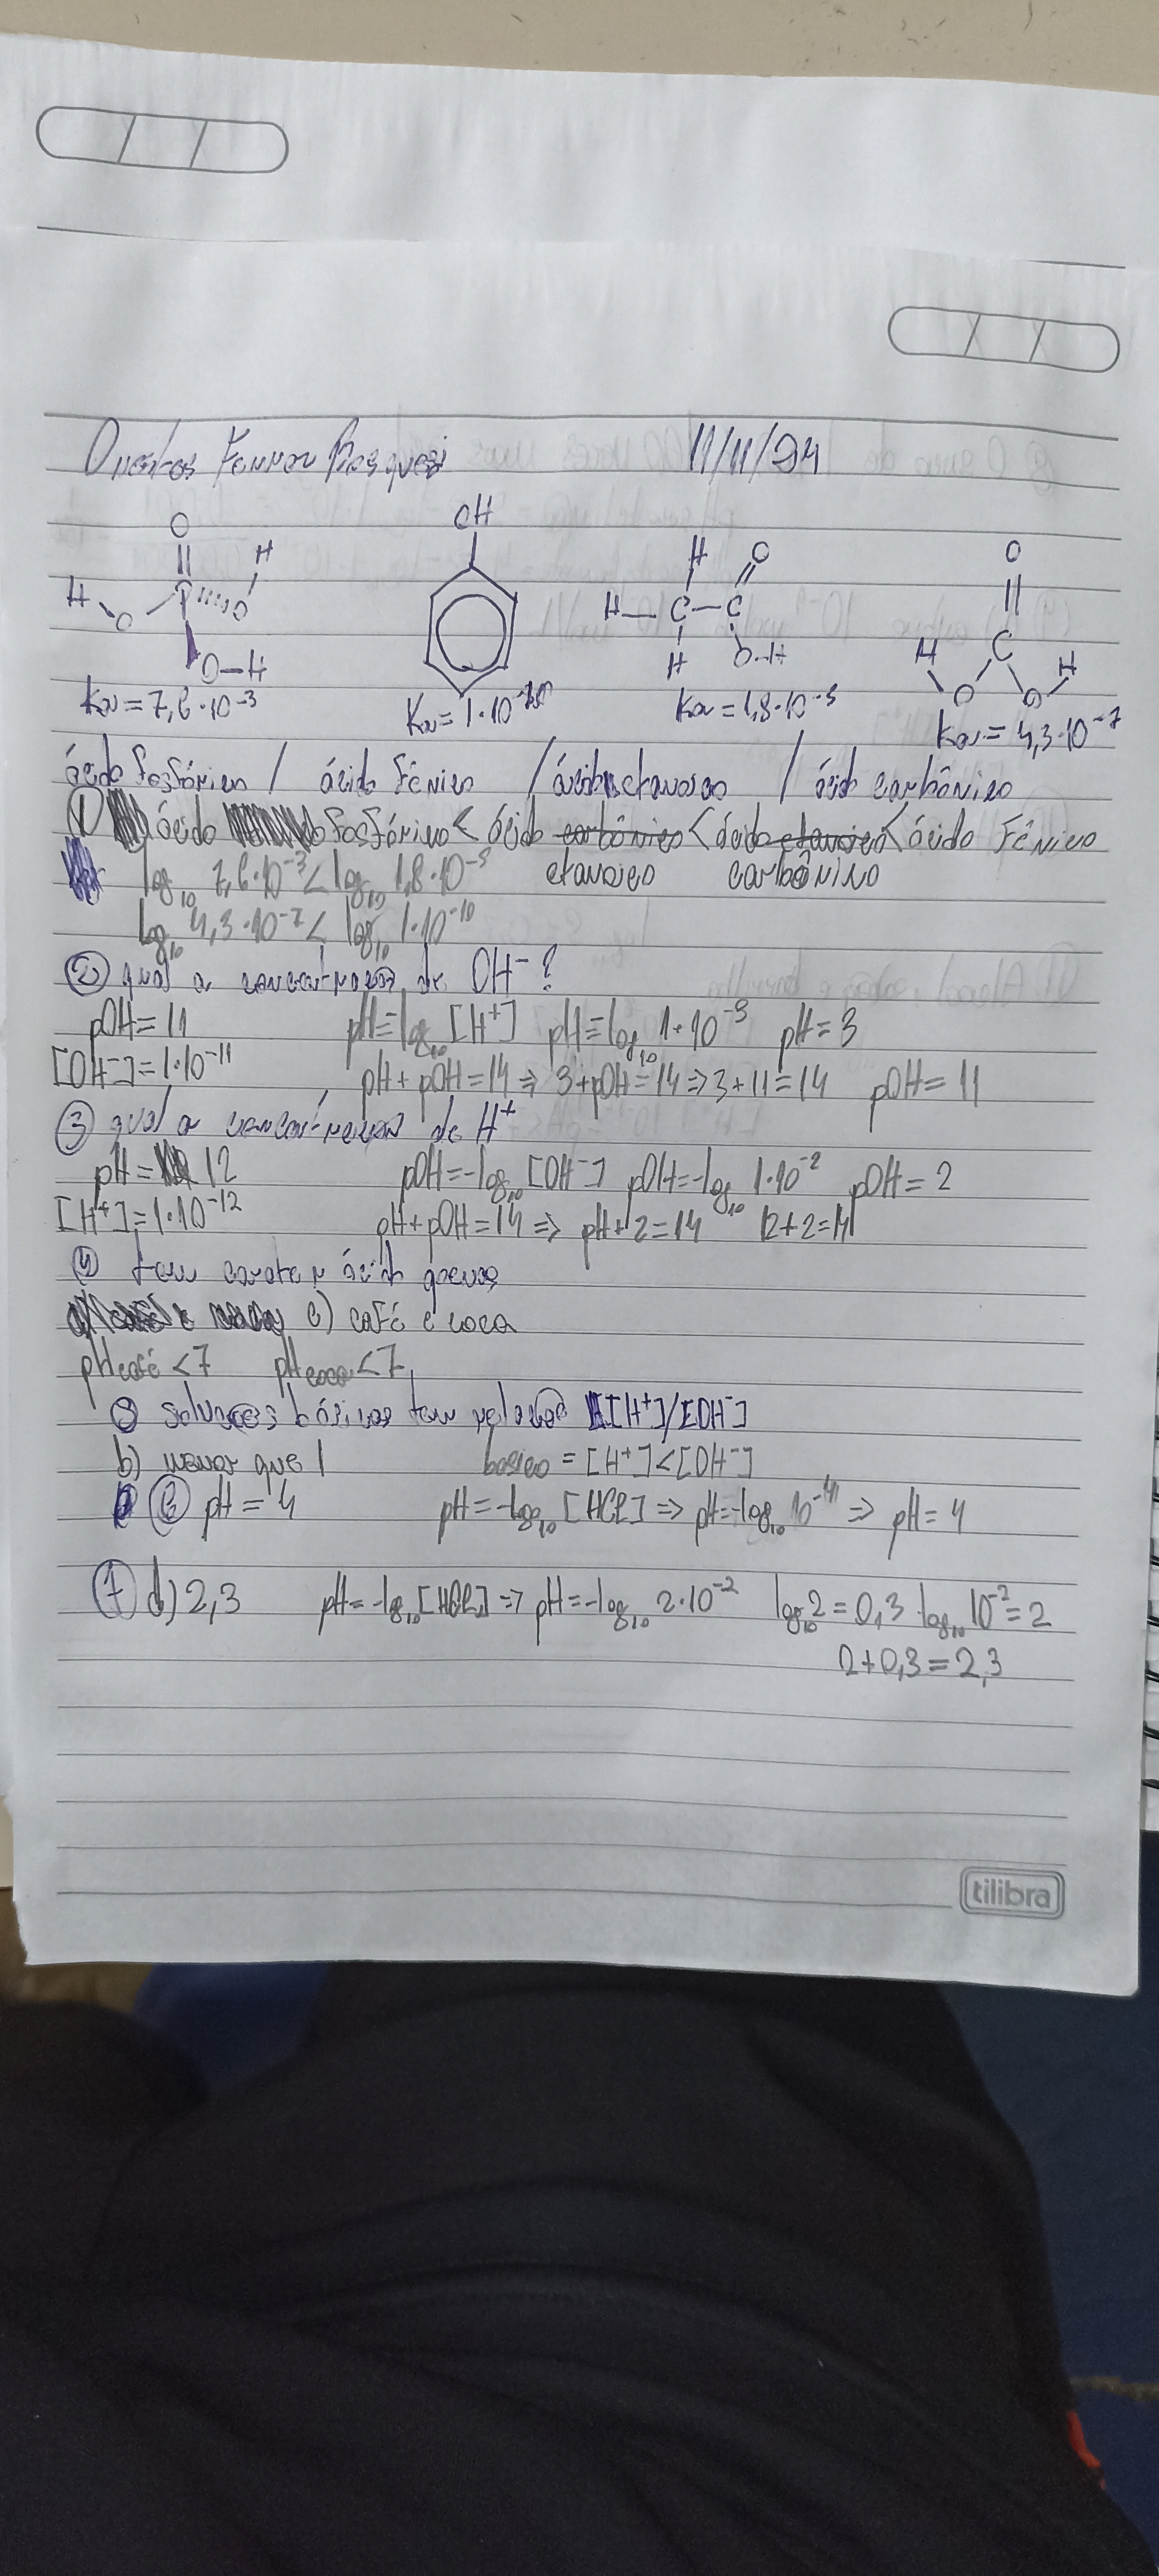 11/11/24
O H P O H O O-H
OH
H O H C C H O-H
O C H O O H
Ka = 7,6·10⁻³ Ka = 1·10⁻¹⁰ Ka = 1,8·10⁻⁵ Ka = 4,3·10⁻⁷
ácido fosfórico / ácido fênico / ácido etanoico / ácido carbônico
① ácido fosfórico < ácido carbônico < ácido etanoico < ácido fênico
etanoico carbônico
log₁₀ 7,6·10⁻³ < log₁₀ 1,8·10⁻⁵
log₁₀ 4,3·10⁻⁷ < log₁₀ 1·10⁻¹⁰
② qual a concentração de OH⁻?
pOH = 11 pH = log₁₀ [H⁺] pH = log₁₀ 1·10⁻³ pH = 3
[OH⁻] = 1·10⁻¹¹ pH + pOH = 14 ⇒ 3 + pOH = 14 ⇒ 3 + 11 = 14 pOH = 11
③ qual a concentração de H⁺
pH = 12 pOH = -log₁₀ [OH⁻] pOH = -log₁₀ 1·10⁻² pOH = 2
[H⁺] = 1·10⁻¹² pH + pOH = 14 ⇒ pH + 2 = 14 12 + 2 = 14
④ tem carater ácido apenas
e) café e coca
pH café < 7 pH coca < 7
soluções básicas tem relação [H⁺]/[OH⁻]
b) menor que 1 basico = [H⁺] < [OH⁻]
⑥ pH = 4 pH = -log₁₀ [HCl] ⇒ pH = -log₁₀ 10⁻⁴ ⇒ pH = 4
⑦ d) 2,3 pH = -log₁₀ [HCl] ⇒ pH = -log₁₀ 2·10⁻² log₁₀ 2 = 0,3 log₁₀ 10⁻² = 2
2 + 0,3 = 2,3
tilibra